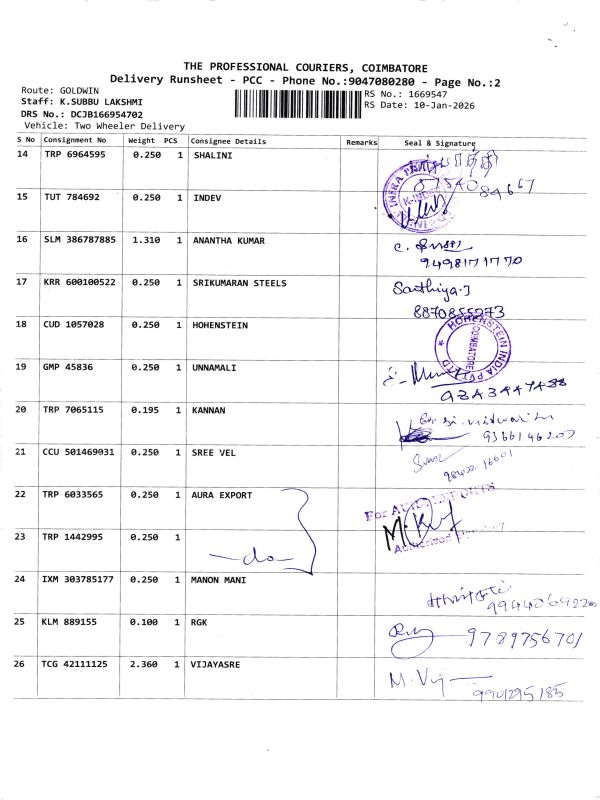 THE PROFESSIONAL COURIERS, COIMBATORE
Delivery Runsheet - PCC - Phone No.:9047080280 - Page No.:2
Route: GOLDWIN
Staff: K.SUBBU LAKSHMI
DRS No.: DCJB166954702
Vehicle: Two Wheeler Delivery
RS No.: 1669547
RS Date: 10-Jan-2026
S No Consignment No Weight PCS Consignee Details Remarks Seal & Signature
14 TRP 6964595 0.250 1 SHALINI
15 TUT 784692 0.250 1 INDEV
16 SLM 386787885 1.310 1 ANANTHA KUMAR
9498171770
17 KRR 600100522 0.250 1 SRIKUMARAN STEELS Sathiya.J
8870855273
18 CUD 1057028 0.250 1 HOHENSTEIN HOHENSTEIN INDIA PVT LTD COIMBATORE
19 GMP 45836 0.250 1 UNNAMALI
20 TRP 7065115 0.195 1 KANNAN
9366146207
21 CCU 501469031 0.250 1 SREE VEL
22 TRP 6033565 0.250 1 AURA EXPORT For
23 TRP 1442995 0.250 1 -do- Authorized
24 IXM 303785177 0.250 1 MANON MANI
25 KLM 889155 0.100 1 RGK 9789756701
26 TCG 42111125 2.360 1 VIJAYASRE M. Vij
9901295185